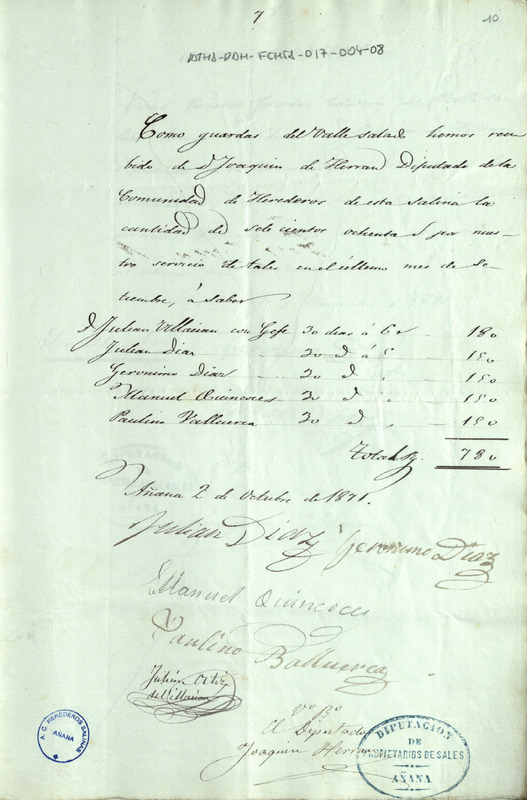 7
10
ATHA-DAH-FCHSA-017-004-08
Como guardas del Valle salado hemos reci
bido de D Joaquin de Herran Diputado de la
Comunidad de Herederos de esta Salina la
cantidad de setecientos ochenta por nues-
tro servicio de tales en el ultimo mes de Se-
tiembre, á saber
D Julian Villacian con Gefe 30 dias á 6 r 180
Julian Diaz 30 d á 5 150
Geronimo Diaz 30 d " 150
Manuel Quincoces 30 d " 150
Paulino Valluerca 30 d " 150
Total 780
Añana 2 de Octubre de 1871.
Julian Diaz Geronimo Diaz
Manuel Quincoces
Paulino Balluerca
Julián Ortiz
de Villacian
Vº Bº
El Diputado
Joaquin Herran
A. C. HEREDEROS SALINAS
AÑANA
DIPUTACION
DE
PROPIETARIOS DE SALES
AÑANA